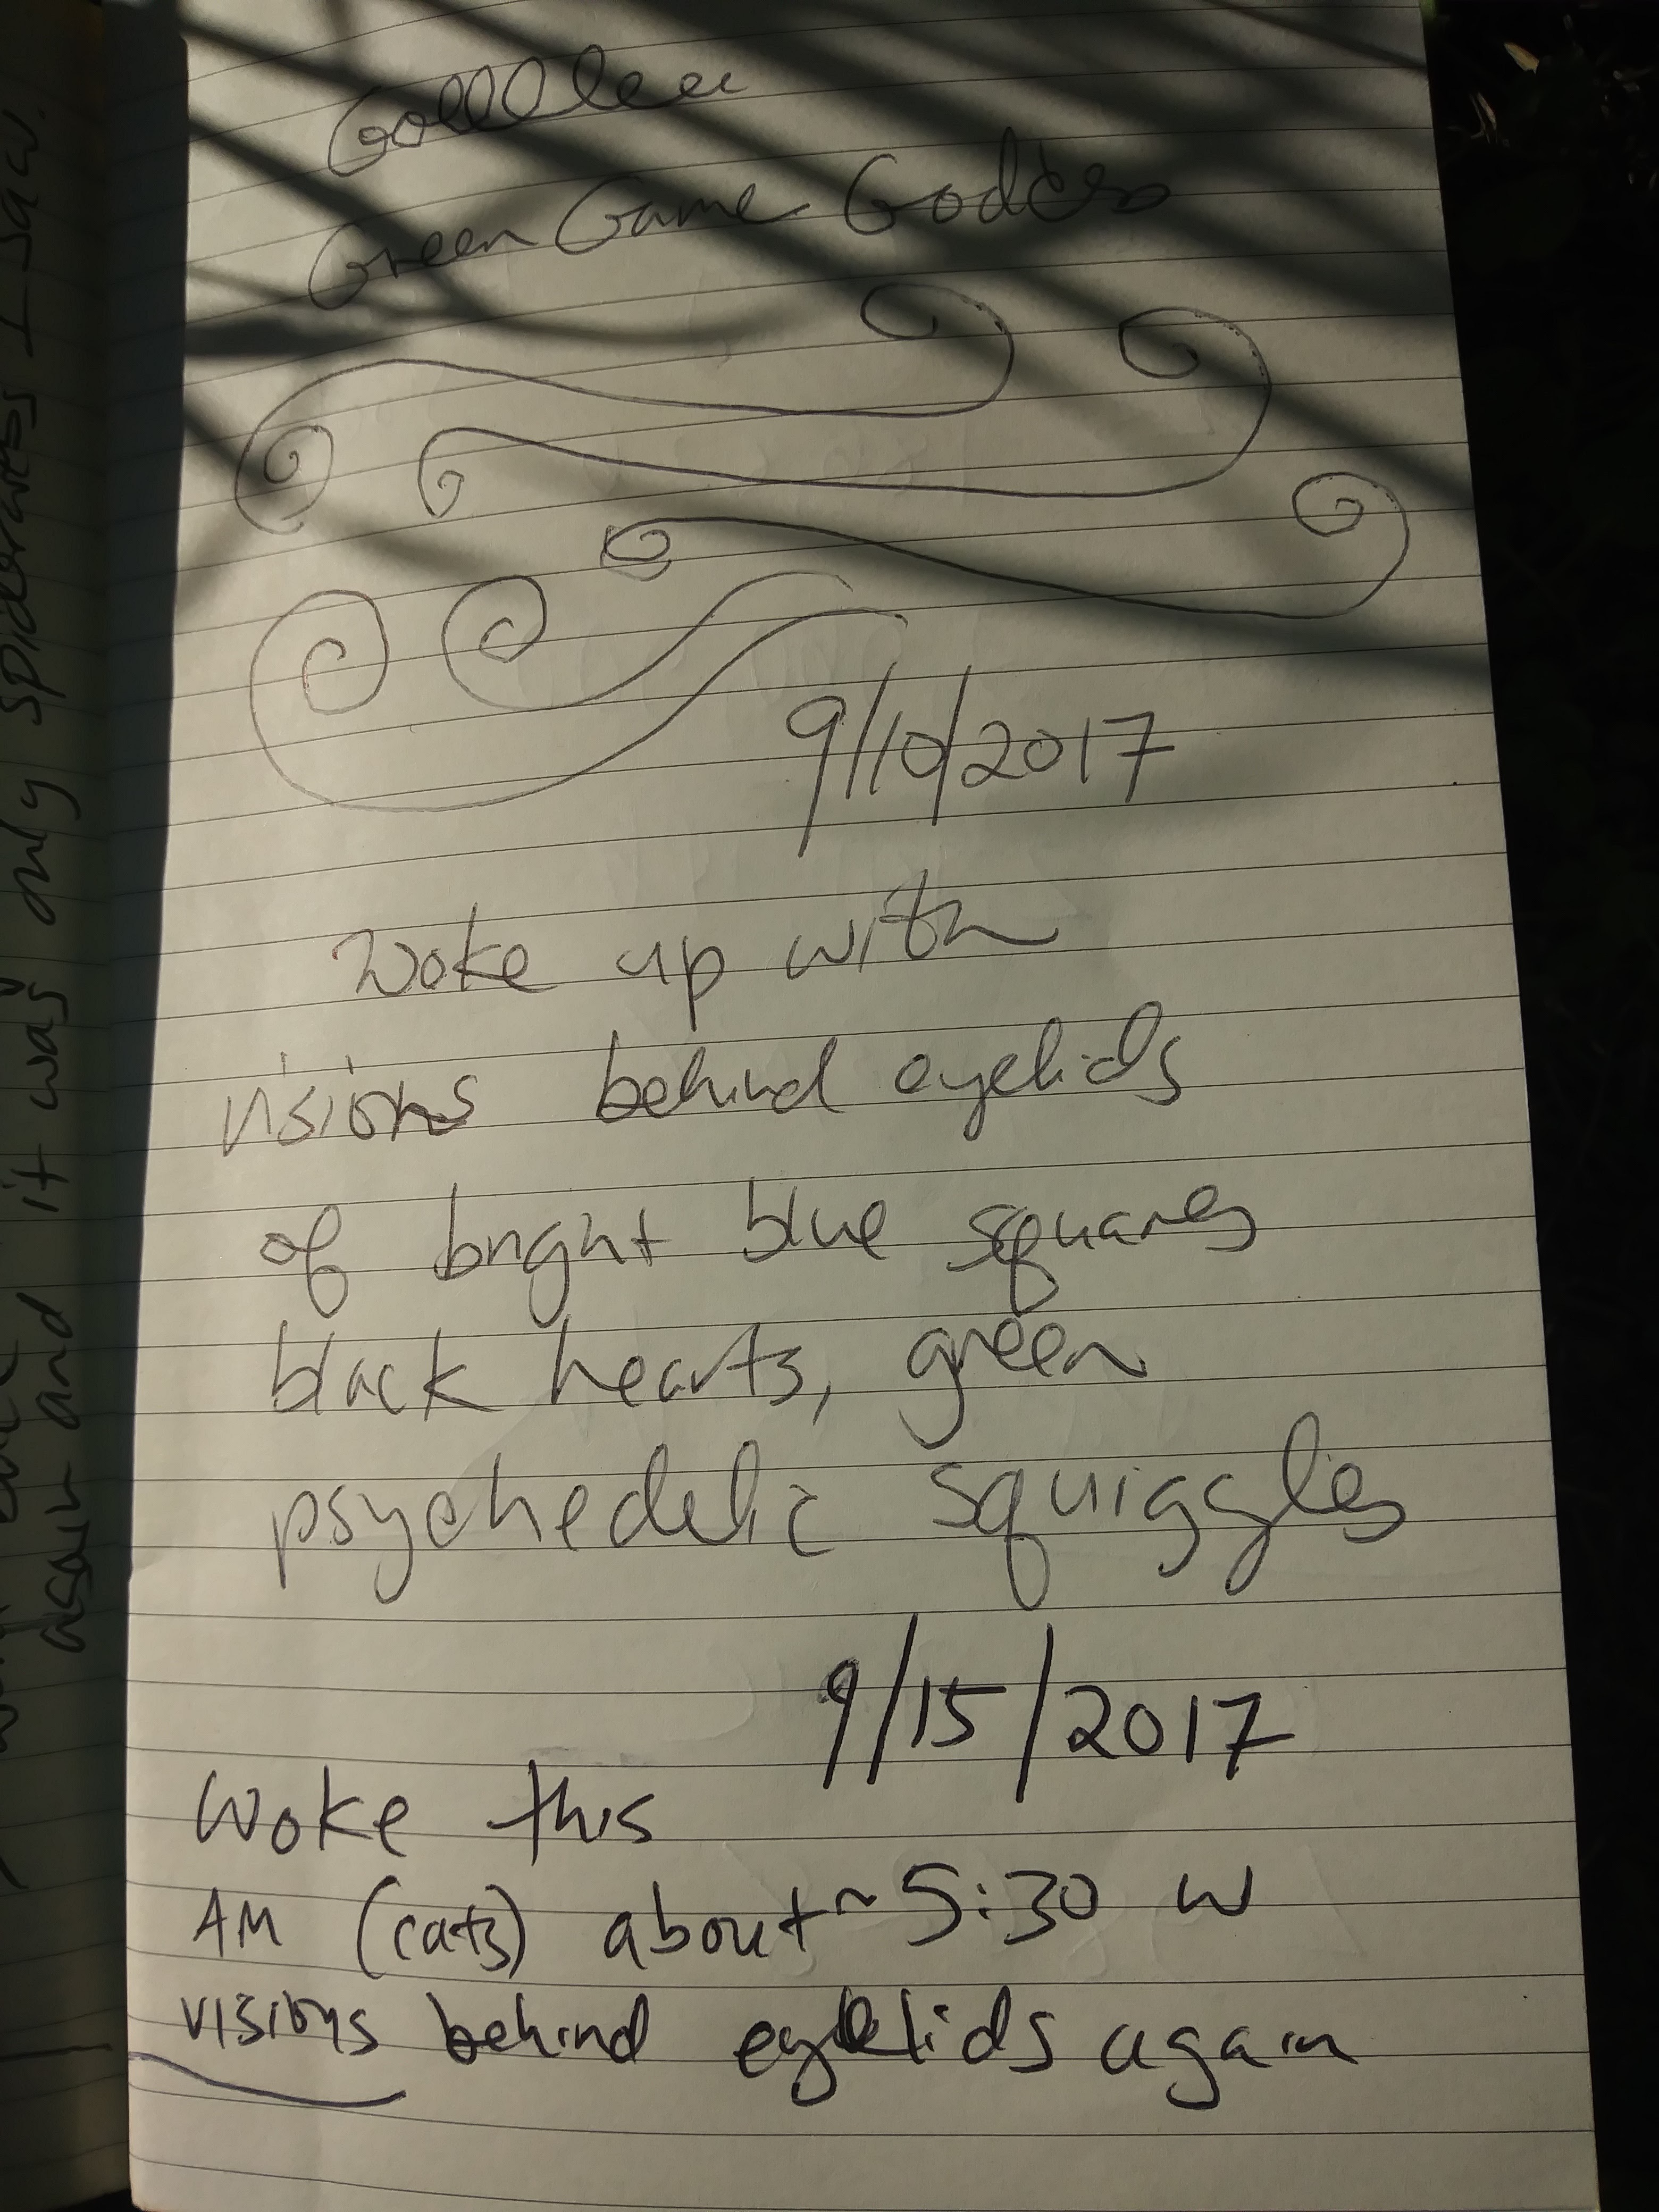 Green Game Goddess
9/10/2017
Woke up with
visions behind eyelids
of bright blue squares
black hearts, green
psychedelic squiggles
9/15/2017
Woke this
AM (cats) about ~ 5:30 w
visions behind eyelids again
it was only spiderwebs I saw.
and